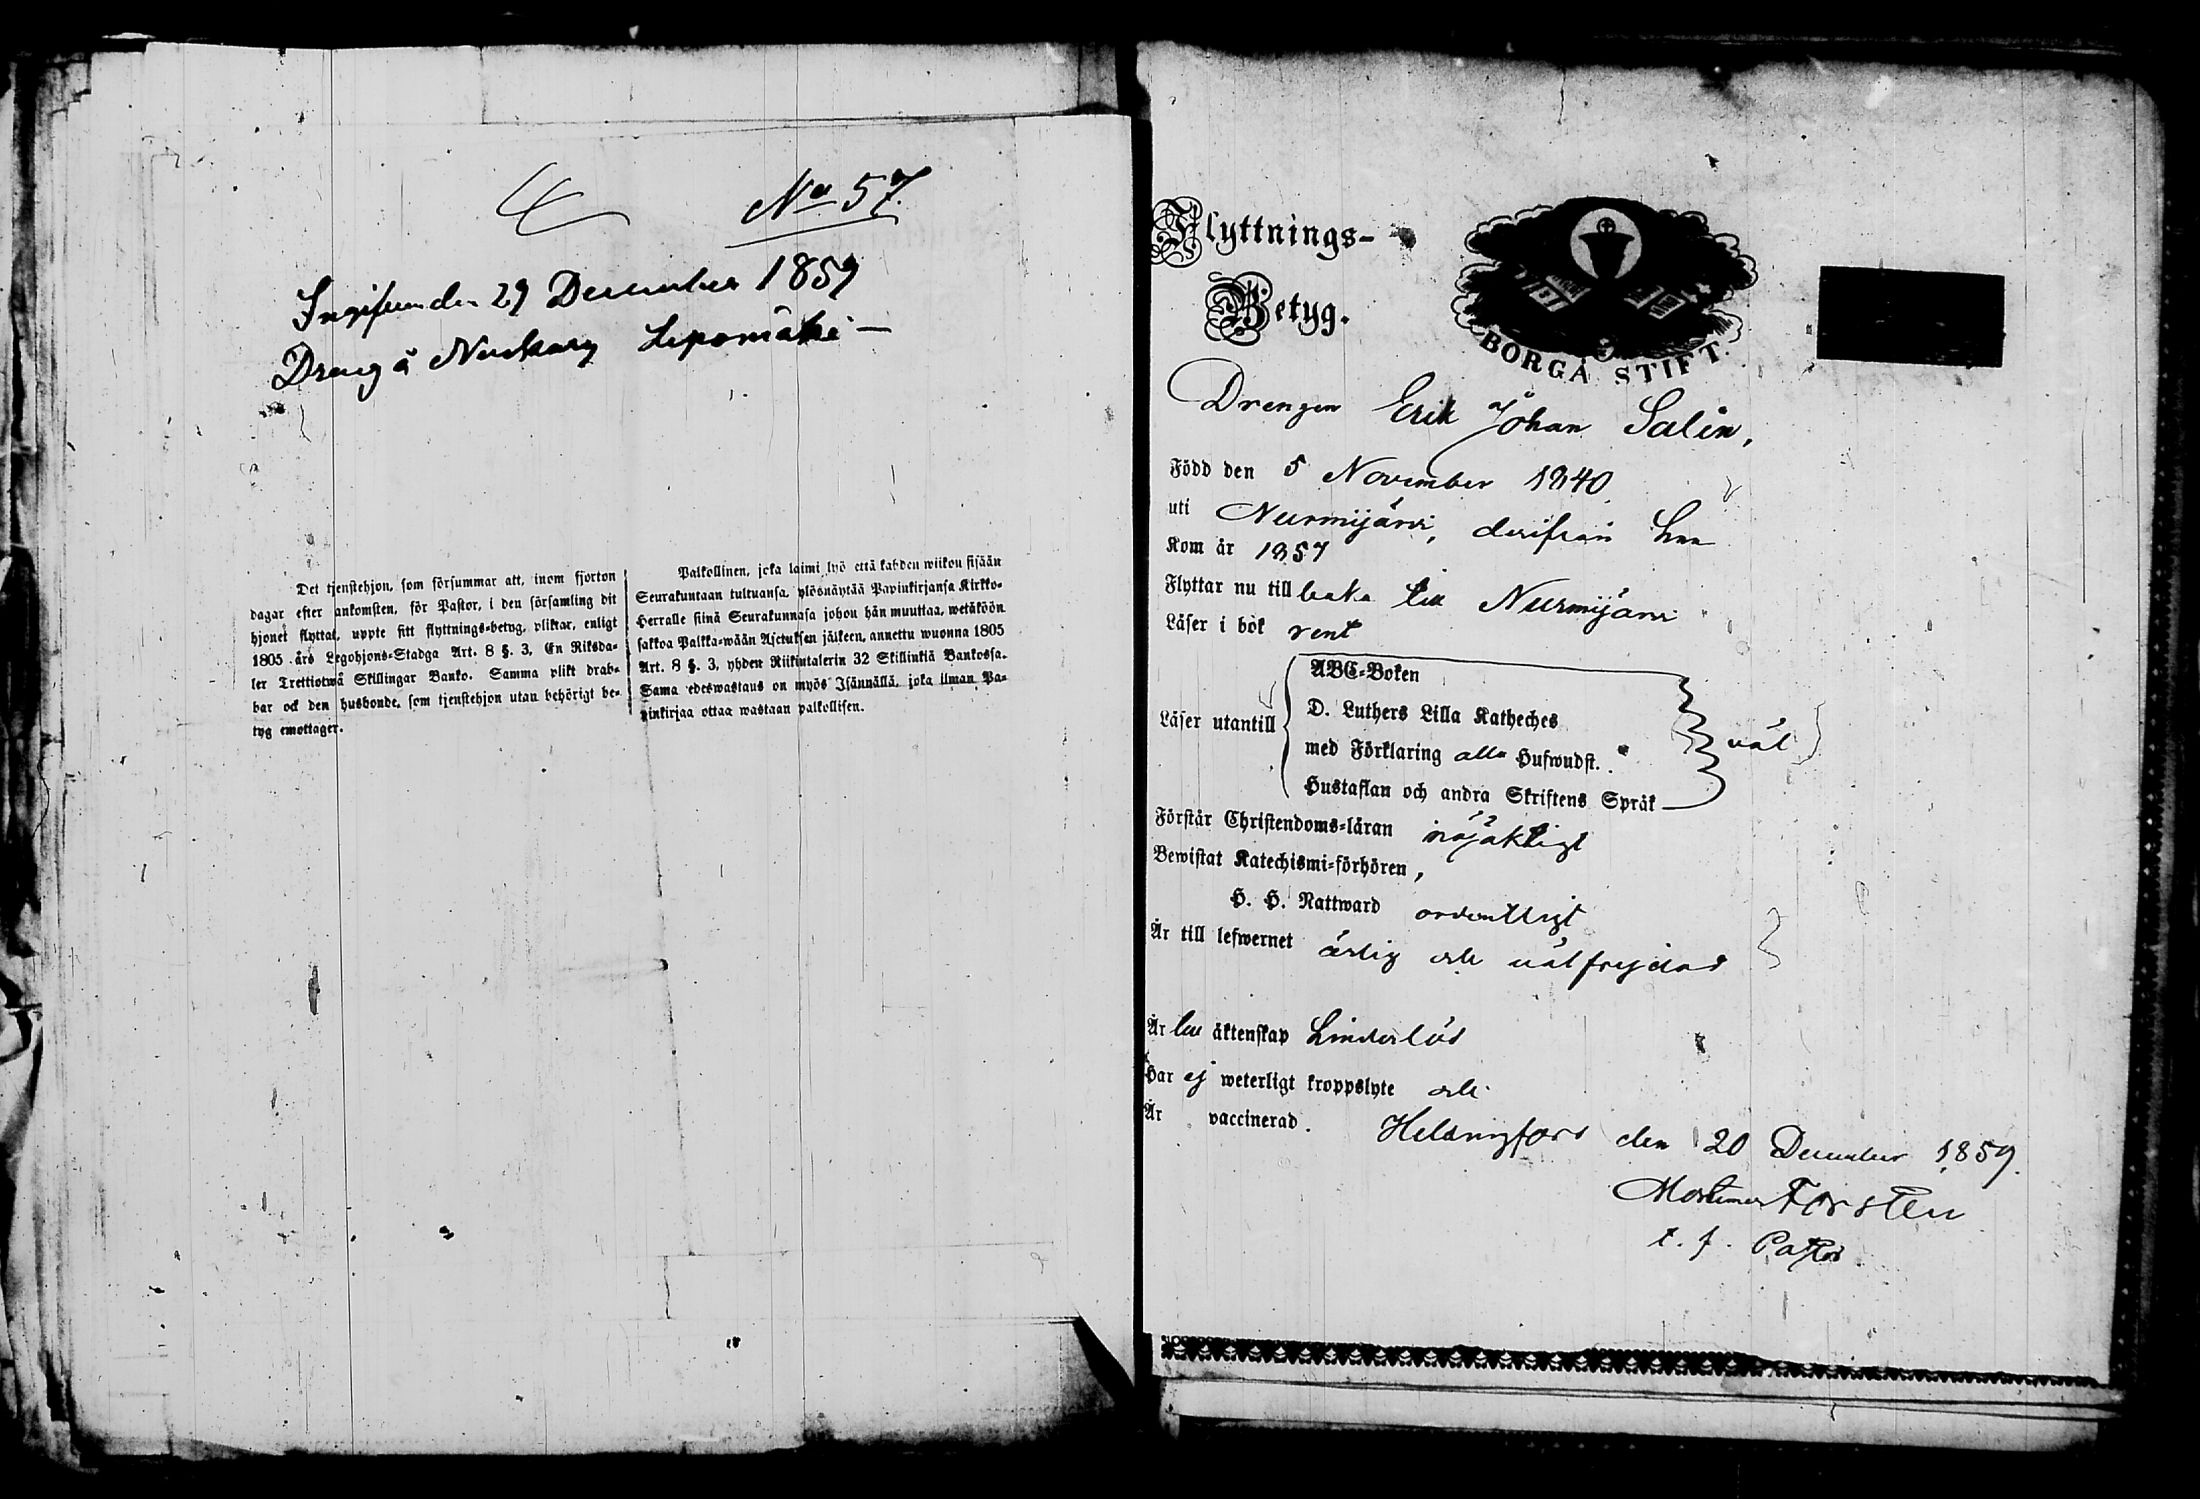 No 57.
Ingifven den 29 December 1859
Dreng å Nackarg Lepomäki —
Det tjenstehjon, som försummar att, inom fjorton
dagar efter ankomsten, för Pastor, i den församling dit
hjonet flyttat, uppte sitt flyttnings-betyg, pliktar, enligt
1805 års Legohjons-Stadga Art. 8 §. 3, En Riksda-
ler Trettiotwå Skillingar Banko. Samma plikt drab-
bar ock den husbonde, som tjenstehjon utan behörigt be-
tyg emottager.
Palkollinen, joka laimi lyö että kahden wiikon sisään
Seurakuntaan tultuansa, ylösnäytää Papinkirjansa Kirkko-
Herralle siinä Seurakunnasa johon hän muuttaa, wetäköön
sakkoa Palkka-wään Asetuksen jälkeen, annettu wuonna 1805
Art. 8 §. 3, yhden Riikintalerin 32 Skillinkiä Bankossa.
Sama edeswastaus on myös Isännällä, joka ilman Pa-
pinkirjaa ottaa wastaan palkollisen.
Flyttnings-
Betyg.
BORGÅ STIFT.
Drengen Erik Johan Salin,
Född den 5 November 1840
uti Nurmijärvi, derifrån han
Kom år 1857
Flyttar nu till baka till Nurmijärvi
Läser i bok rent
Läser utantill
ABC-Boken
D. Luthers Lilla Katheches
med Förklaring alla Hufwudst.
Hustaflan och andra Skriftens Språk
väl
Förstår Christendoms-läran nöjaktigt
Bewistat Katechismi-förhören,
H. H. Nattward ordentligt
Är till lefwernet ärlig och välfrejdad
Är till äktenskap hinderlös
Har ej weterligt kroppslyte och
Är vaccinerad.
Helsingfors den 20 December 1859.
Mortimer Forstén
t. f. Pastor